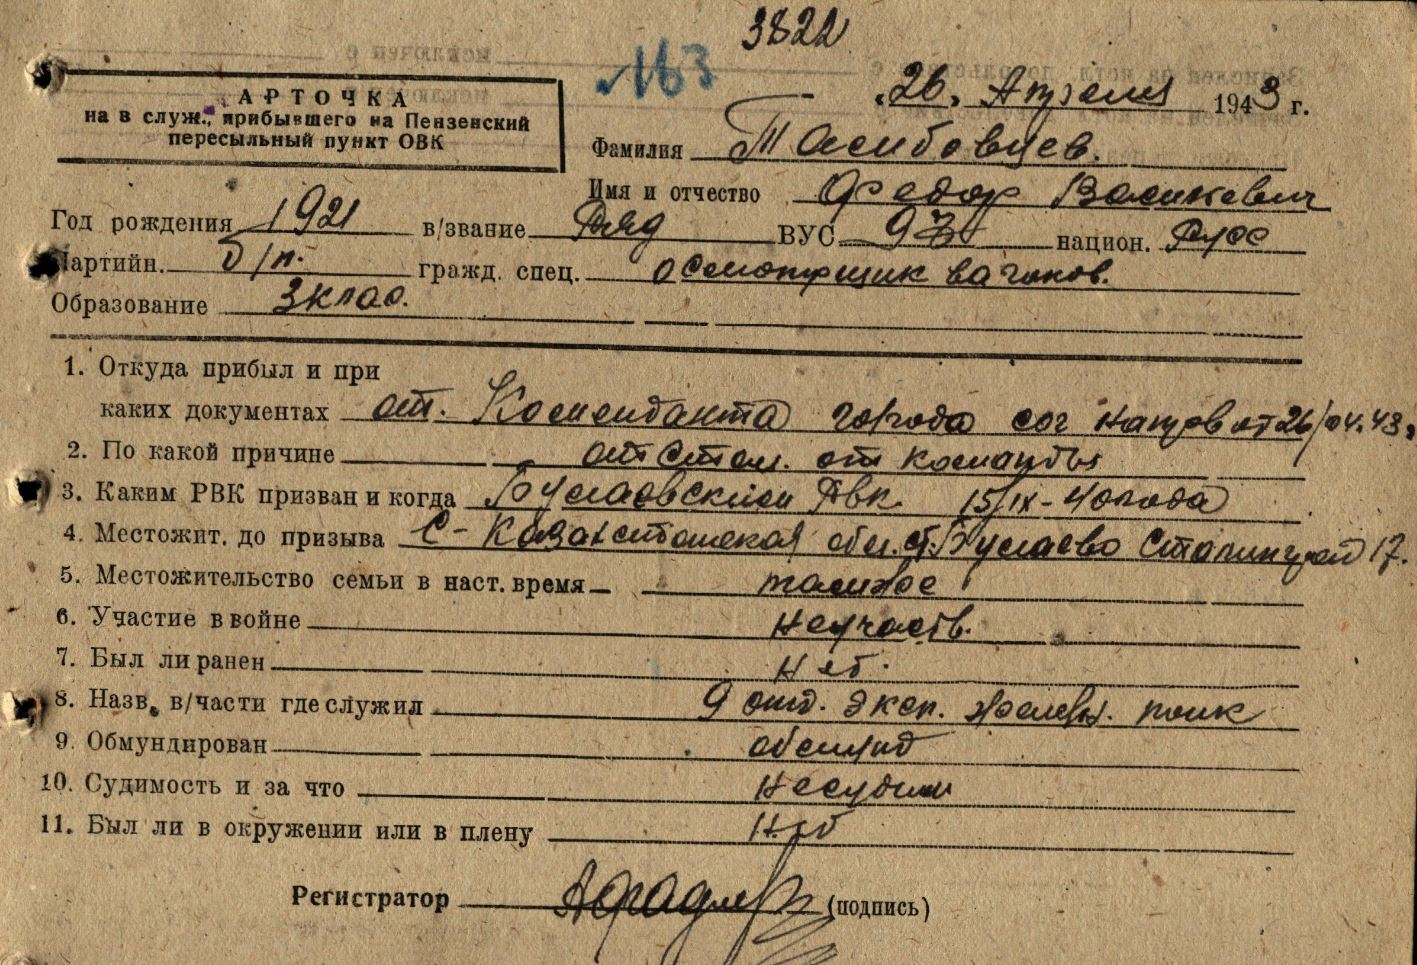 3822
163
АРТОЧКА
на в служ., прибывшего на Пензенский
пересыльный пункт ОВК
"26" Апреля 1943 г.
Фамилия
Имя и отчество Федор Васильевич
Год рождения 1921 в/звание Ряд ВУС национ. Русс
Партийн. б/п. гражд. спец. осмотрщик вагонов.
Образование 3 клас.
1. Откуда прибыл и при
каких документах от. Коменданта города сог напров от 26/04.43г
2. По какой причине отстал. от команды
3. Каким РВК призван и когда Булаевским Рвк 15/IX-40 года
4. Местожит. до призыва С-Казахстанская обл. ст. Булаево Сталинская 17.
5. Местожительство семьи в наст. время
6. Участие в войне Неучаств.
7. Был ли ранен Нет.
8. Назв. в/части где служил 9 отд. эксп. железн. полк
9. Обмундирован обмунд
10. Судимость и за что Несудим
11. Был ли в окружении или в плену Нет
Регистратор (подпись)